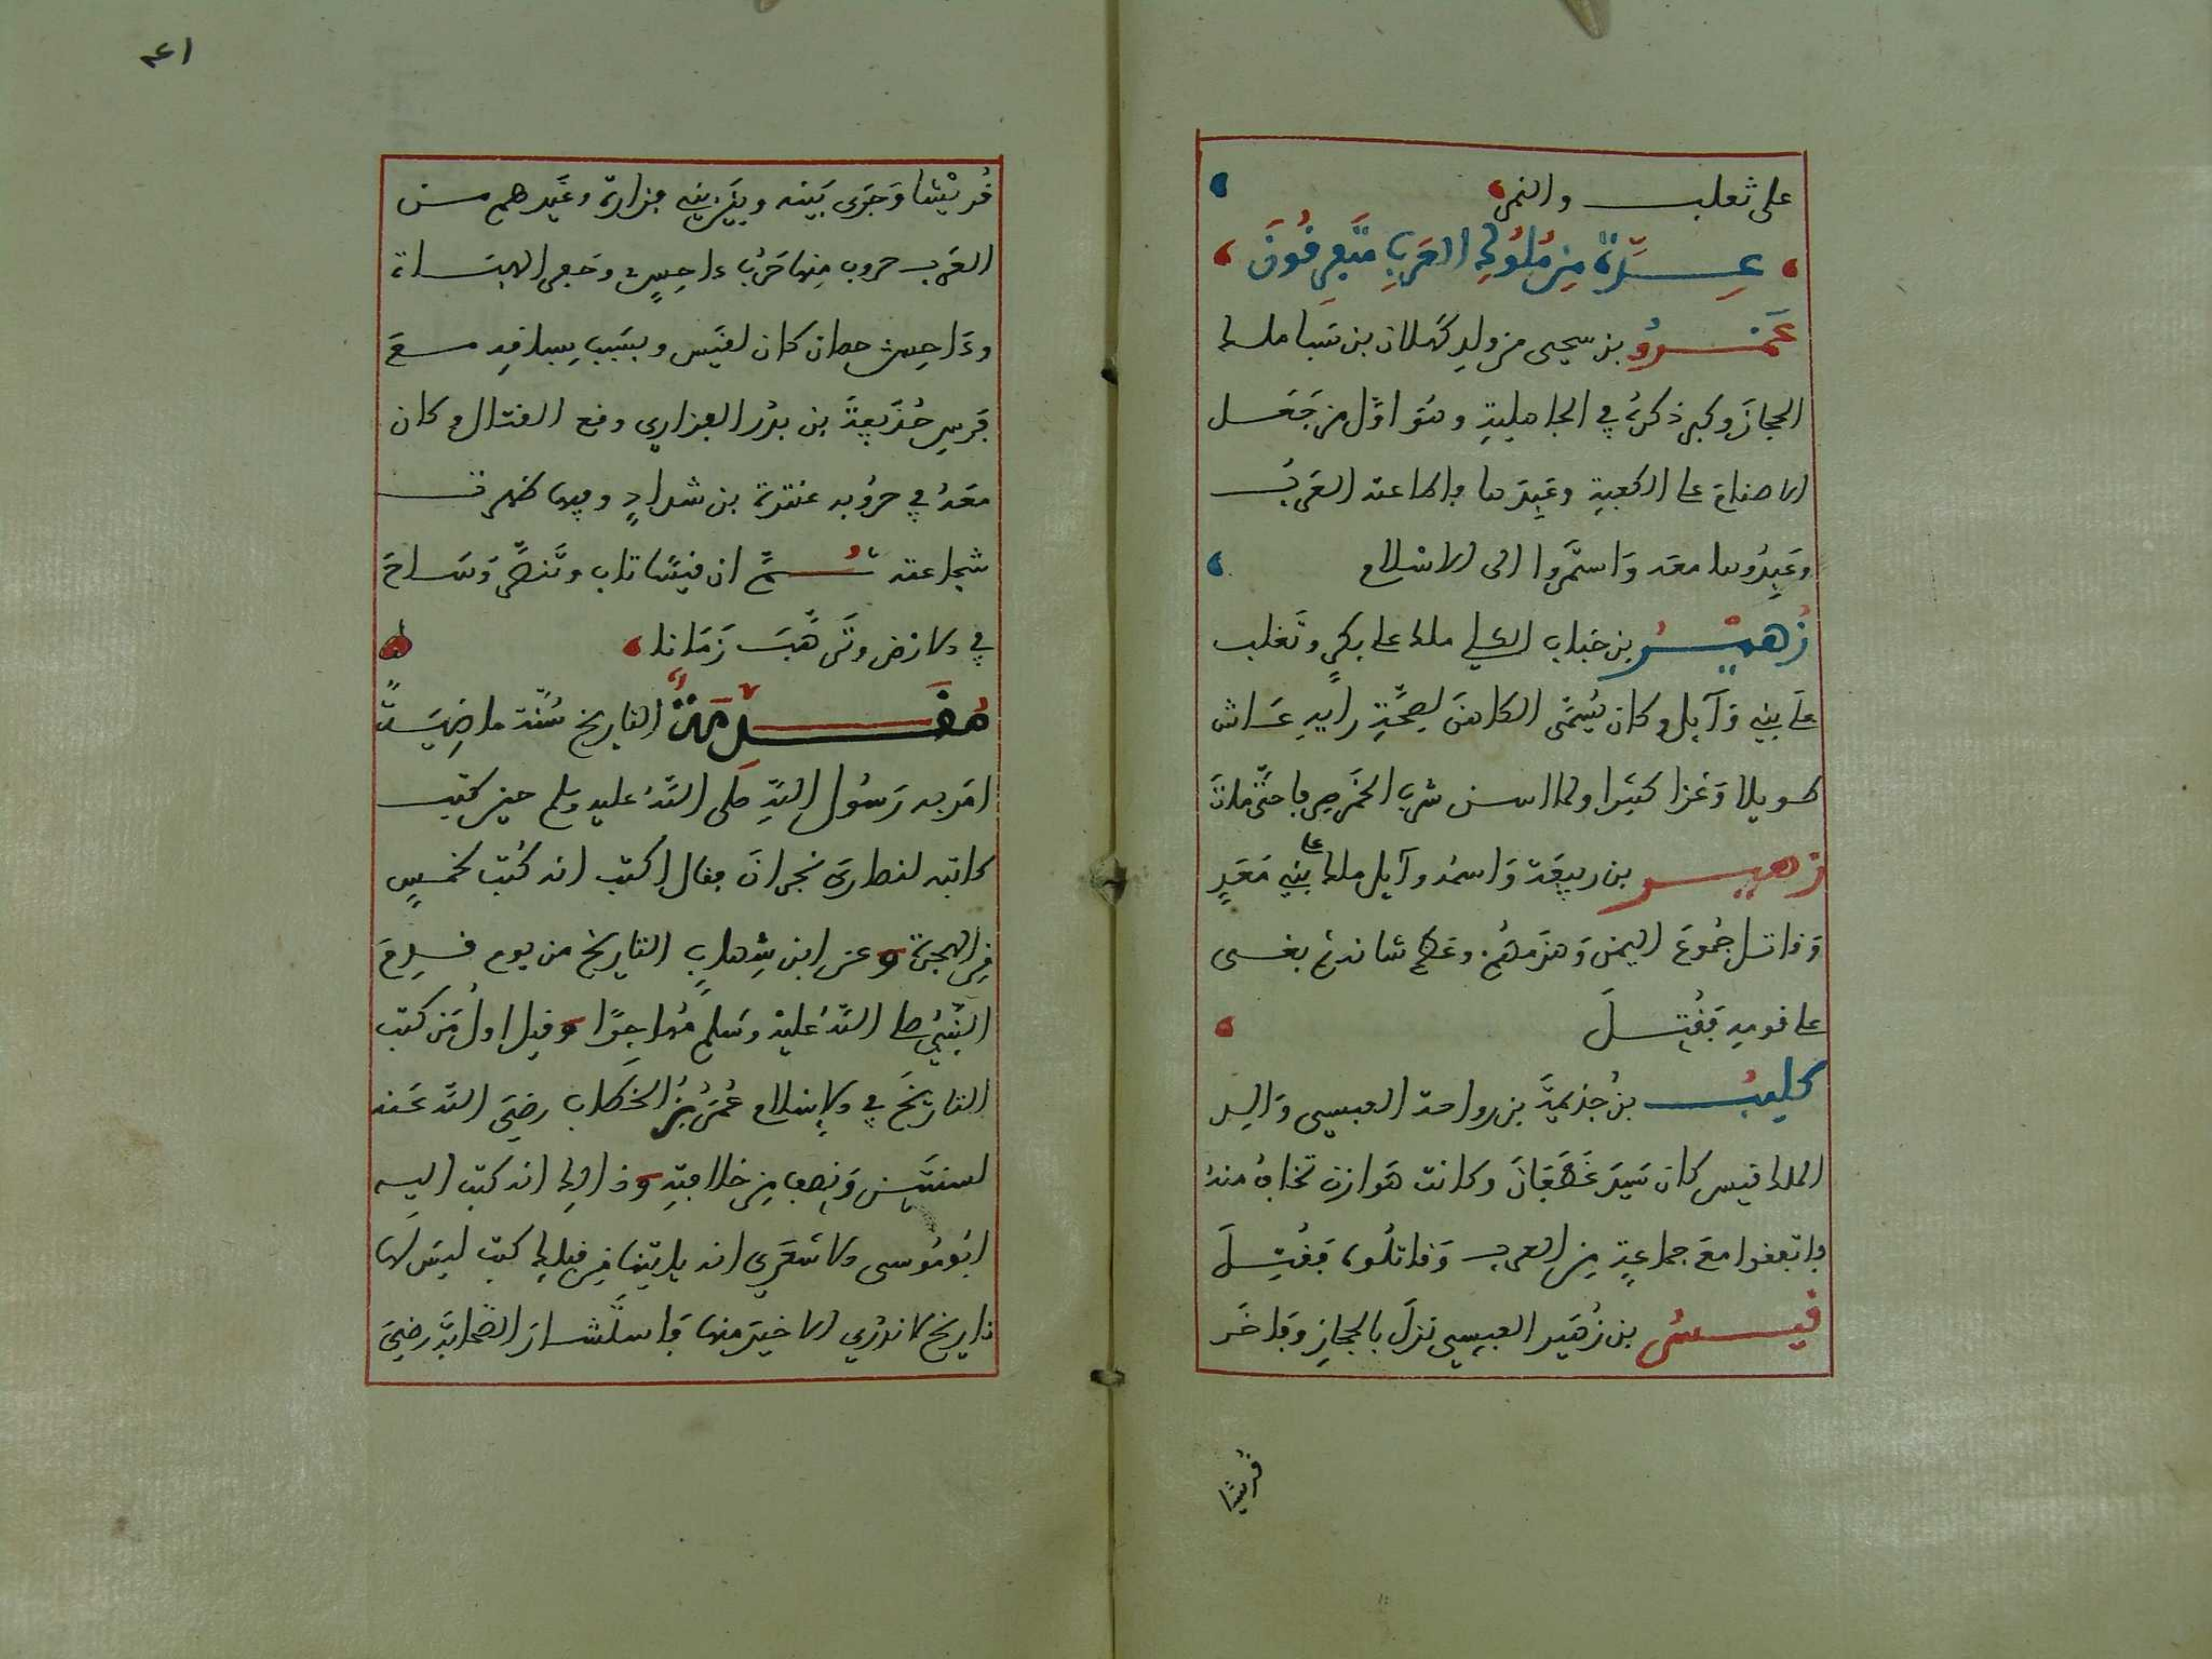 على ثعلب والنمر
عدة من ملوك العرب متفرقون
عَمْرو بن يحيى من ولد كهلان بن سبا ملك
الحجاز وكبر ذكره في الجاهلية وهو اوّل من جعل
الاصنام على الكعبة وعبدها واطاعته العرب
وعبدوها معه واستمروا الى الاسلام
زهير بن خباب الكلبي ملك على بكر وتغلب
على بني وآيل وكان يُسمّى الكاهن لصحّة رايه عاش
طويلا وغزا كثيرا ولما اسن شرب الخمر صرفا حتّى مات
زهير بن ربيعة واسمه وآيل ملك على بني معدٍ
وقاتل جموع اليمن وهزمهُم وعظم شانه ثم بغى
على قومه فقُتل
كليب بن جذيمة بن رواحة العبسي والد
الملك قيس كان سيد غطفان وكانت هوازن تخافه منه
فاتفقوا مع جماعة من العرب وقاتلوه فقُتِل
قيس بن زُهَير العبسي نزل بالحجاز وفاخر
قريشا
٤١
قُريْشا وجرى بينه وبين بني فزارة وغيرهم من
العرب حروب منها حرب داحس وهي الهباة
وداحس حصان كان لقيس وبسبب سباقه مع
فرس حُذيفة بن بدر الفزاري وقع القتال وكان
معه في حروبه عنترة بن شداد وفيها ظهرت
شجاعته ثُمّ ان قيسا تاب وتنصّر وساح
في الارض وترهّب زمانا
مُقدمةٌ التاريخ سُنّة ماضيةٌ
امر به رسول الله صلى الله عليه وسلم حين كتب
كاتبه لنصارى نجران فقال اكتب انه كُتب لخمس
من الهجرة وعن ابن شهاب التاريخ من يوم قدم
النّبيّ صلى الله عليه وسلم مُهاجرًا وقيل اول من كتب
التاريخ في الاسلام عُمر بنُ الخطاب رضي الله عنه
لسنتين ونصف من خلافته وذالك انه كتب اليه
ابو موسى الاشعري انه ياتينا من قبلك كتب ليس لها
تاريخ لا ندري الاخير منها فاستشار الصحابة رضي